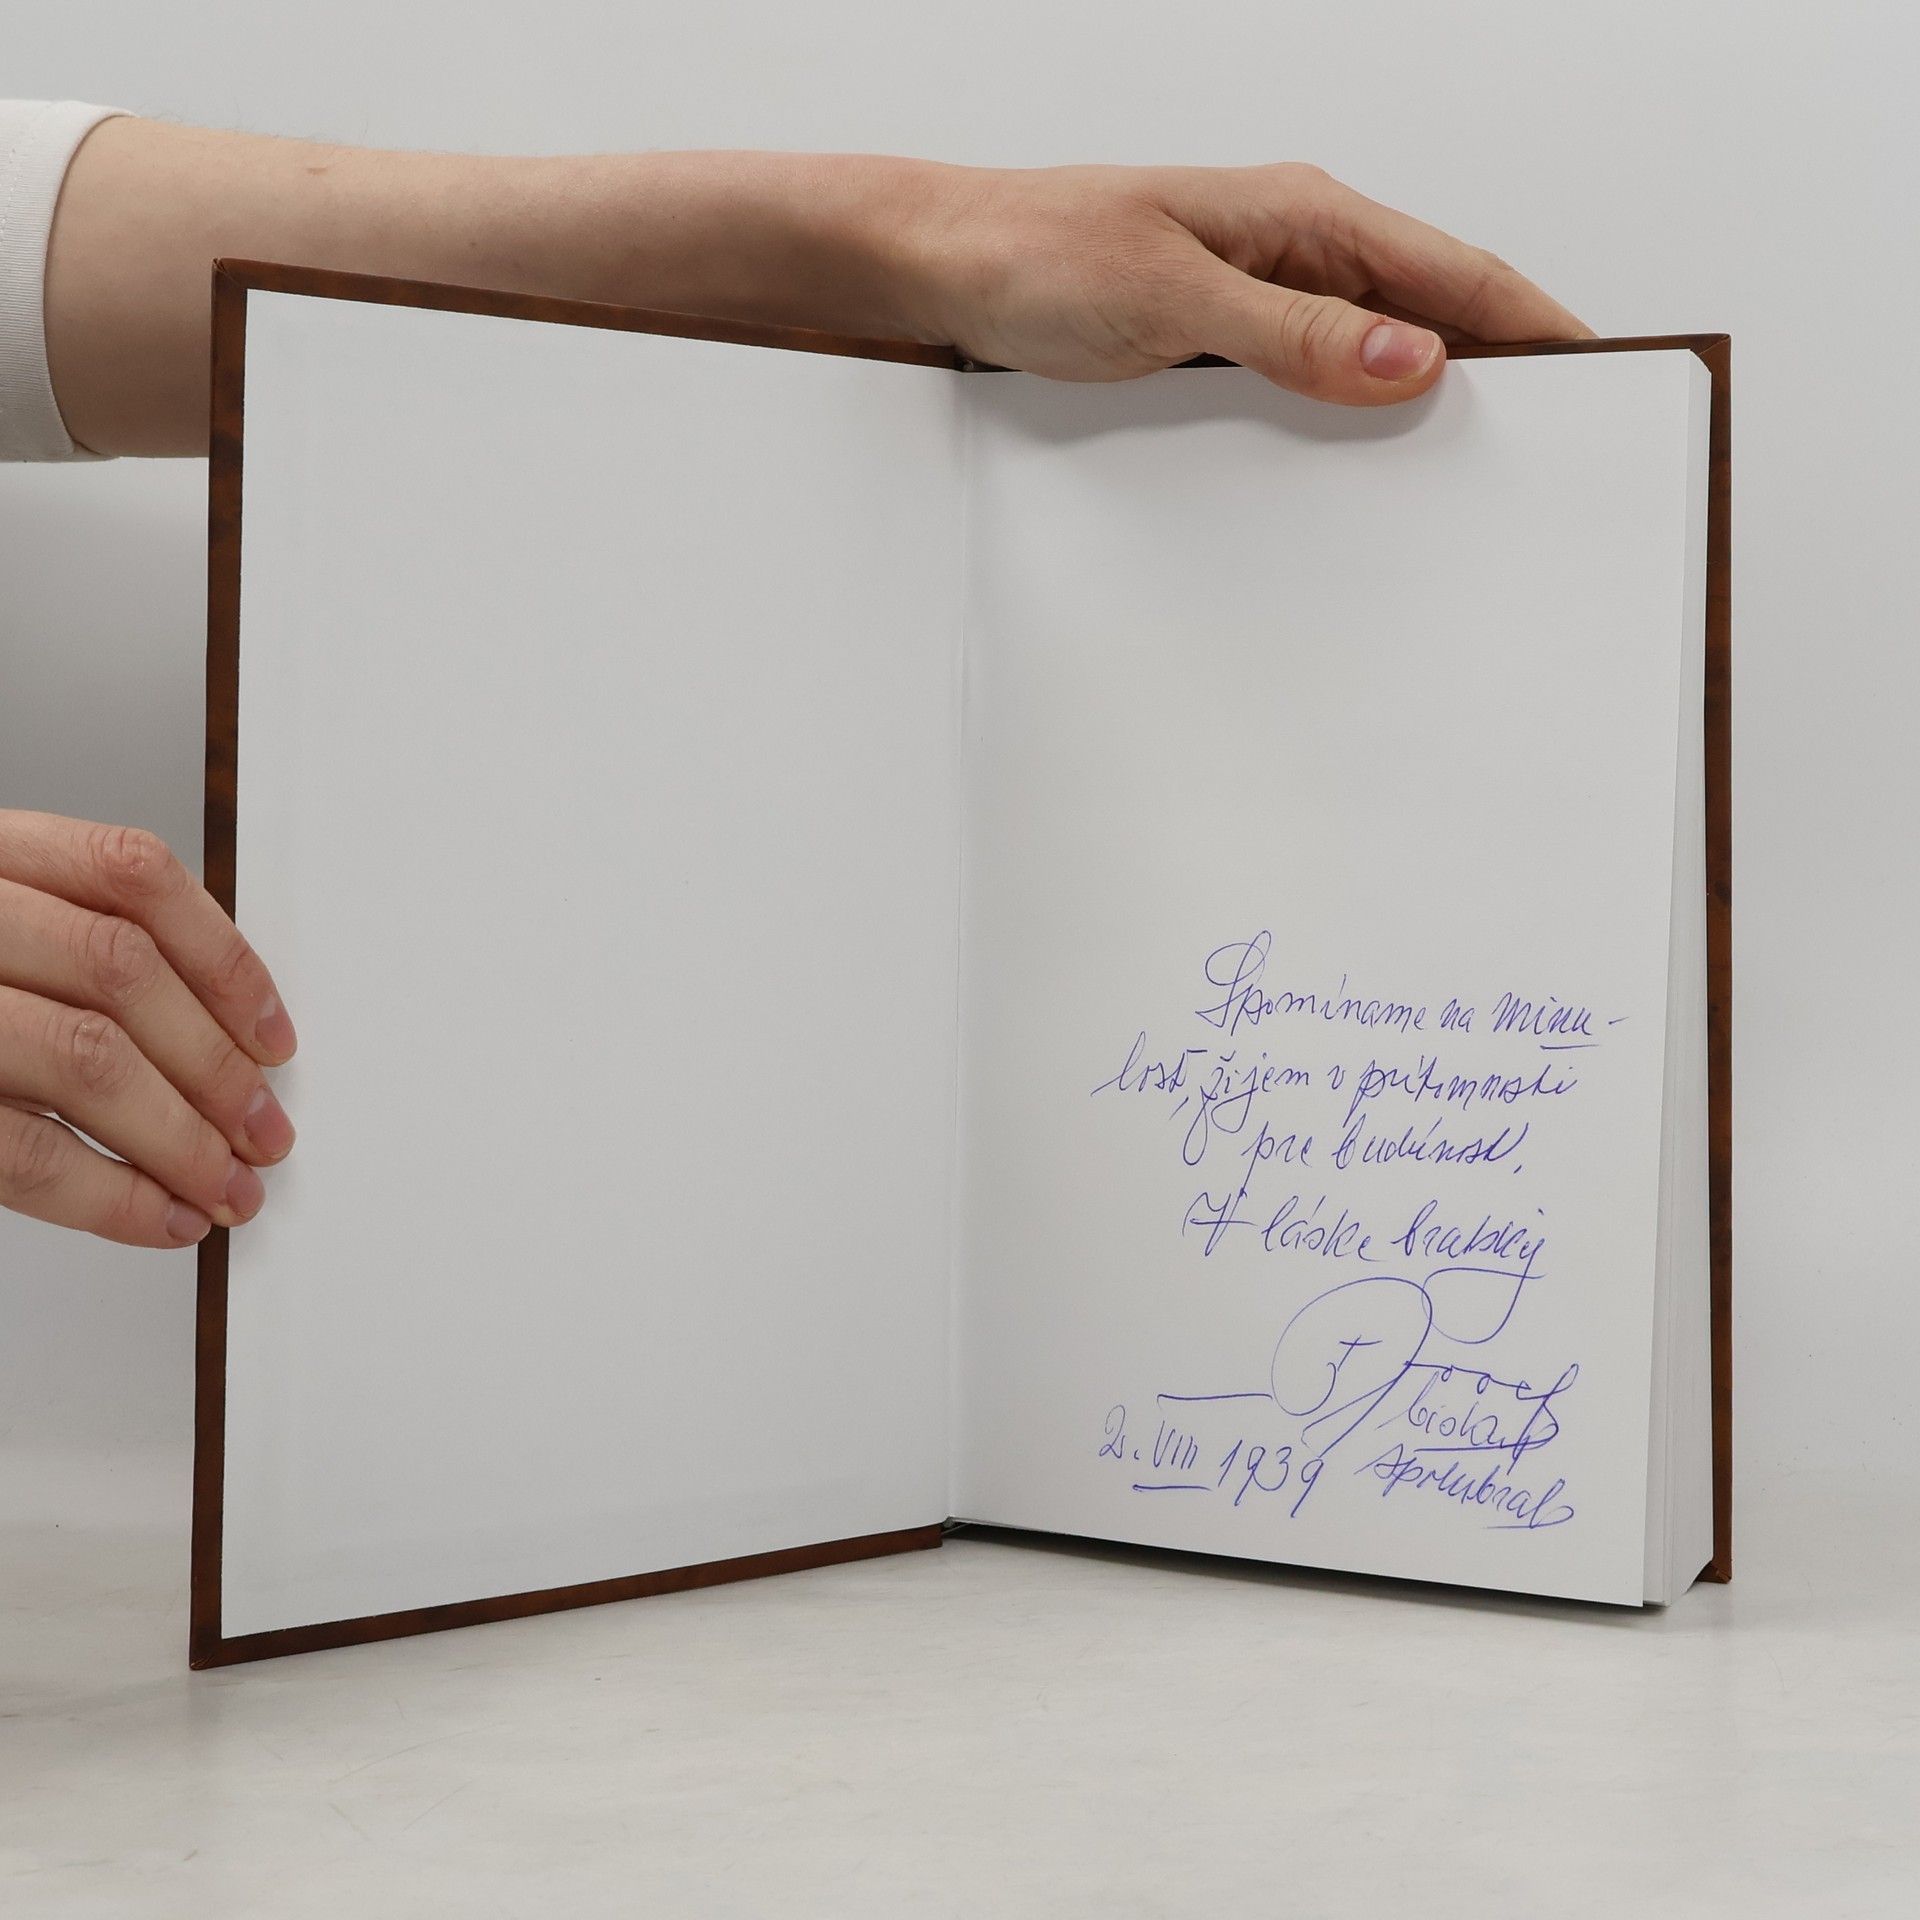 Spomíname na minu-
losť, žijem v prítomnosti
pre budúnosť.
V láske bratský
biskup
2. VIII 1939 spolubrat